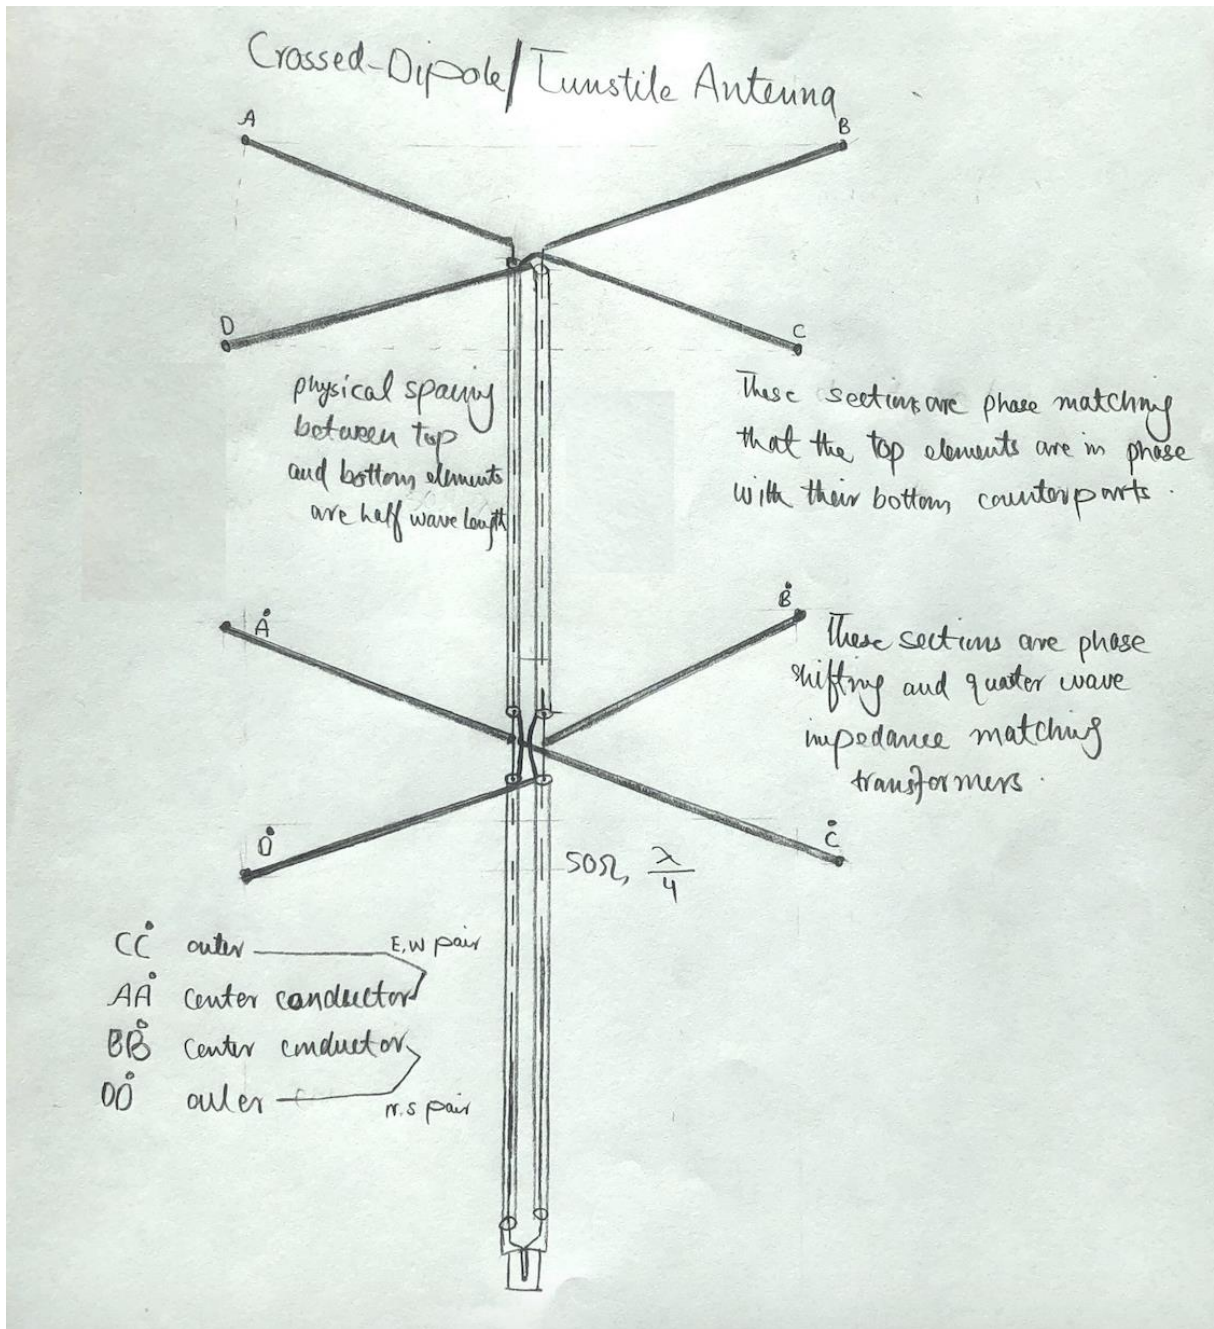 Crossed-Dipole/Tunstile Antenna
A
B
D
C
physical spacing
between top
and bottom elements
are half wave length
These sections are phase matching
that the top elements are in phase
with their bottom counterparts.
Å
B̊
These sections are phase
shifting and quater wave
impedance matching
transformers.
D̊
C̊
50Ω, λ/4
CC̊ outer E,W pair
AÅ center conductor
BB̊ center conductor
DD̊ outer N.S pair